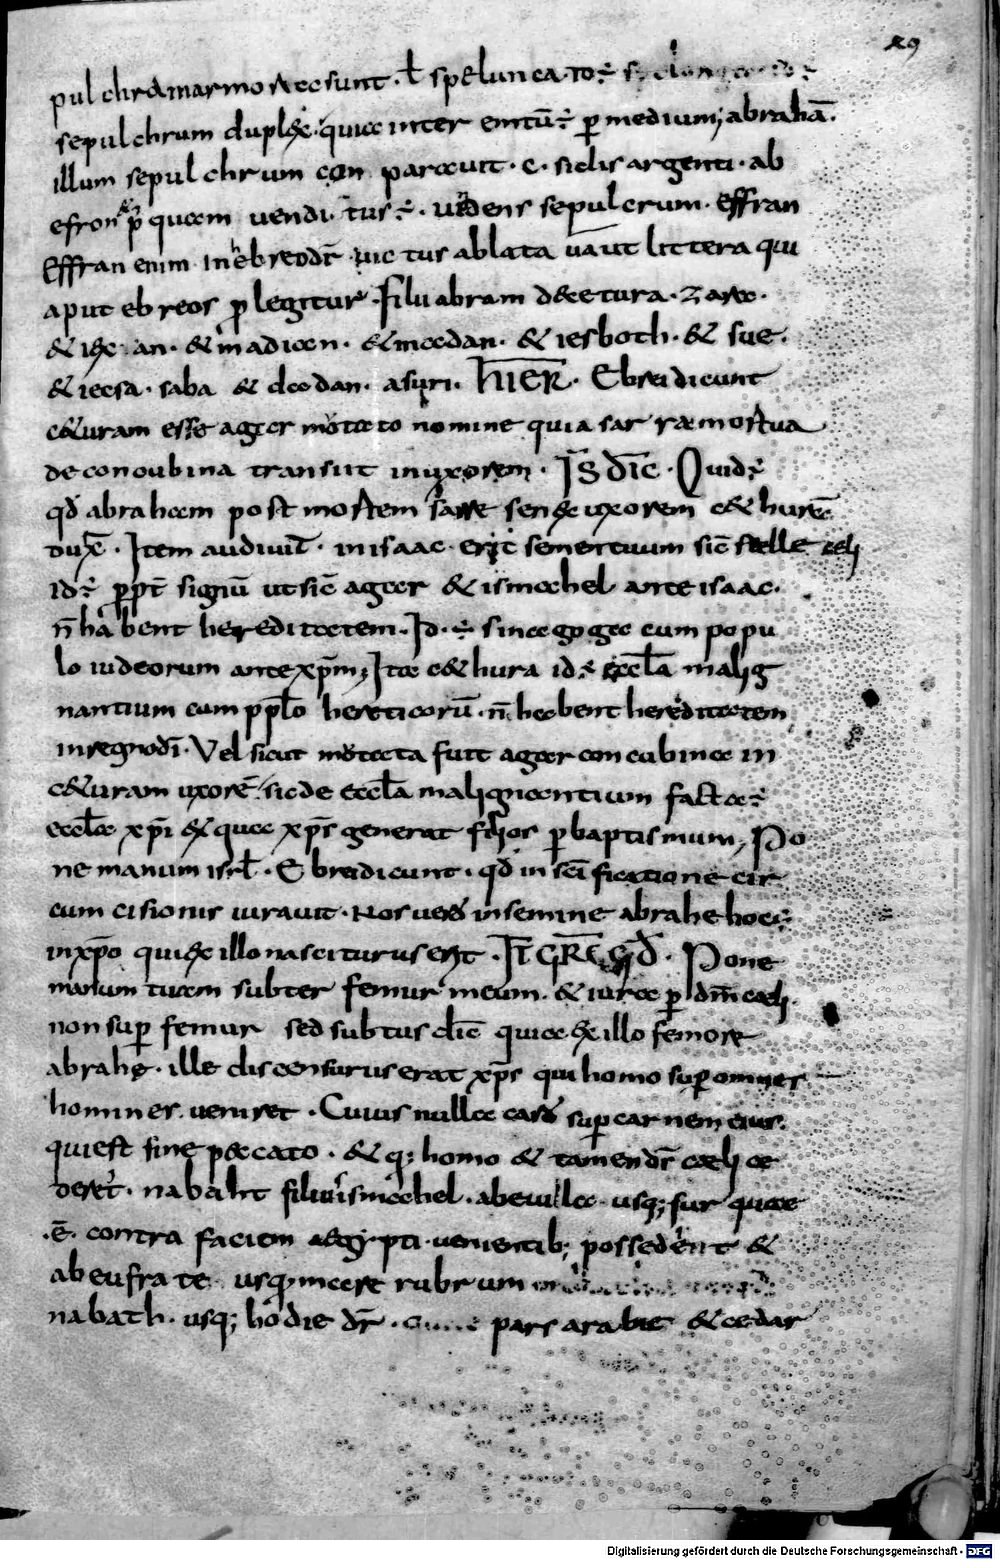 29
pulchra marmorea sunt · ł spelunca
sepulchrum duplex quia inter emtū ÷ p medium; abrahā.
illum sepulchrum conparauit · c · siclis argenti · ab
efron quam uendi tus ÷ · uidens sepulcrum · effran
Effran enim in ebreo dr̄ uic tus ablata uāut littera qui
aput ebreos plegitur · filii abram de cetura · zare ·
& ian · & madian · & madan · & iesboth · & sue ·
& iecsa · saba & dadan · asuri · HIER̄ · Ebrei dicunt
c&uram esse agar motato nomine quia sarra mortua
de concubina transiit in uxorem · IS̄ DIC̄ · Quid ÷
qd̄ abraham post mortem sarre senex uxorem c&hurā
dux̄ · Item audiuit · in isaac · erit semen tuum sic̄ stelle celi
id ÷ ppt̄ signū ut sic̄ agar & ismahel ante isaac ·
n̄ habent hereditatem · Id · ÷ sinagoga cum popu
lo iudeorum ante xp̄m; Ita c&hura id ÷ eccl̄a malig
nantium cum ppl̄o hereticorū · n̄ habent hereditatem
in regno dī · Vel sicut motata fuit agar concubina in
c&uram uxorē sic de eccl̄a malignantium facta ÷
eccl̄a xp̄i ex qua xp̄s generat filios p baptismum; Po
ne manum isrl̄ · Ebrei dicunt · qd̄ in sc̄ificatione cir
cumcisionis iurauit · Nos uero in semine abrahe hoc ÷
in xp̄o qui ex illo nasciturus erit · H̄ GR̄G QD̄ · Pone
manum tuam subter femur meum · & iura p dm̄ caeli ·
non sup femur sed subtus dic̄ quia ex illo femore
abrahę · ille discensurus erat xp̄s qui homo sup omnes
homines ueniret · Cuius nulla caro sup carnem eius ·
qui est sine peccato · & q; homo & tamen dr̄ caeli ac
terre · nabaht filius ismahel · ab euila · usq; sur quae
· ē · contra faciem aegypti uenientib; possedert &
ab eufrate usq; mare rubrum
nabath · usq; hodie dr̄ · pars arabie & cedar
Digitalisierung gefördert durch die Deutsche Forschungsgemeinschaft - DFG